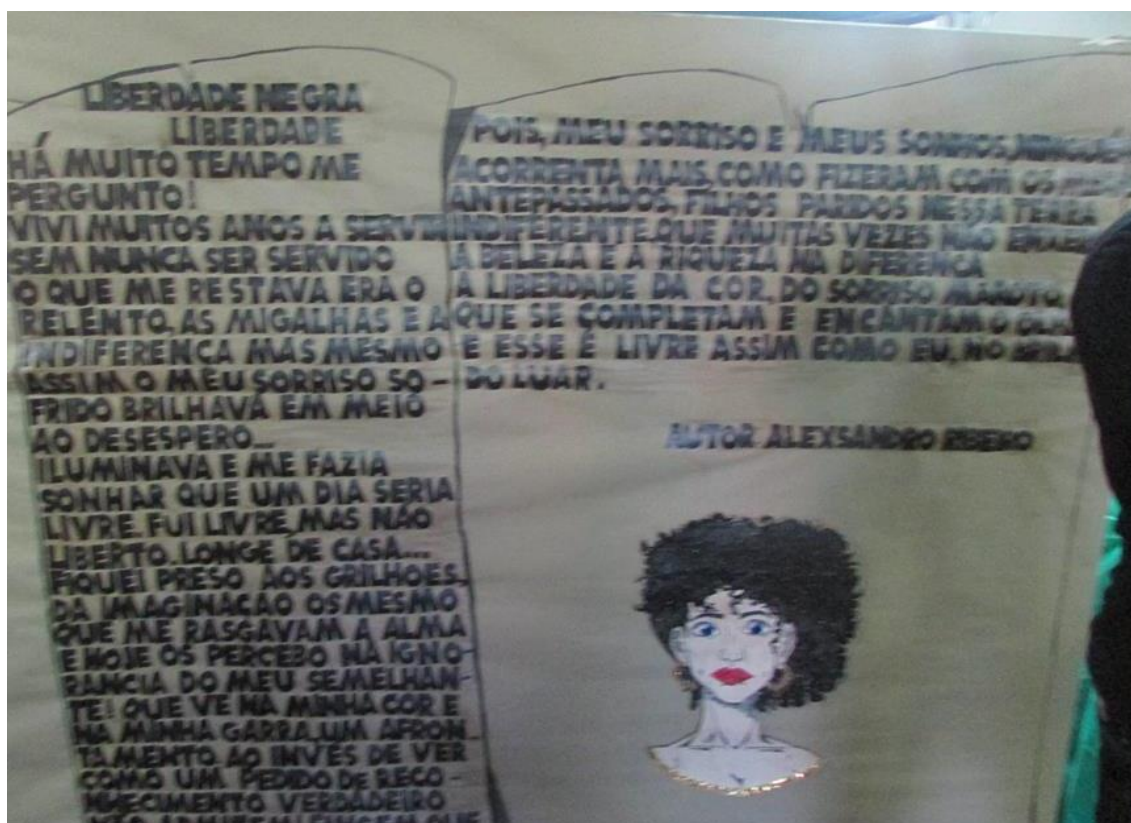 LIBERDADE NEGRA
LIBERDADE
HÁ MUITO TEMPO ME
PERGUNTO!
VIVI MUITOS ANOS A SERVIR
SEM NUNCA SER SERVIDO
O QUE ME RESTAVA ERA O
RELENTO, AS MIGALHAS E A
INDIFERENCA MAS MESMO
ASSIM O MEU SORRISO SO-
FRIDO BRILHAVA EM MEIO
AO DESESPERO...
ILUMINAVA E ME FAZIA
SONHAR QUE UM DIA SERIA
LIVRE. FUI LIVRE, MAS NÃO
LIBERTO. LONGE DE CASA...
FIQUEI PRESO AOS GRILHOES
DA IMAGINACAO OS MESMO
QUE ME RASGAVAM A ALMA
E HOJE OS PERCEBO NA IGNO-
RANCIA DO MEU SEMELHAN-
TE! QUE VE NA MINHA COR E
NA MINHA GARRA, UM AFRON-
TAMENTO AO INVÉS DE VER
COMO UM PEDIDO DE RECO-
NHECIMENTO VERDADEIRO
POIS, MEU SORRISO E MEUS SONHOS, NINGUÉM
ACORRENTA MAIS, COMO FIZERAM COM OS MEUS
ANTEPASSADOS, FILHOS PARIDOS NESSA TERRA
INDIFERENTE. QUE MUITAS VEZES NÃO
A BELEZA E A RIQUEZA NA DIFERENÇA
A LIBERDADE DA COR, DO SORRISO MAROTO,
QUE SE COMPLETAM E ENCANTAM O
E ESSE É LIVRE ASSIM COMO EU, NO
DO LUAR.
AUTOR: ALEXSANDRO RIBERO